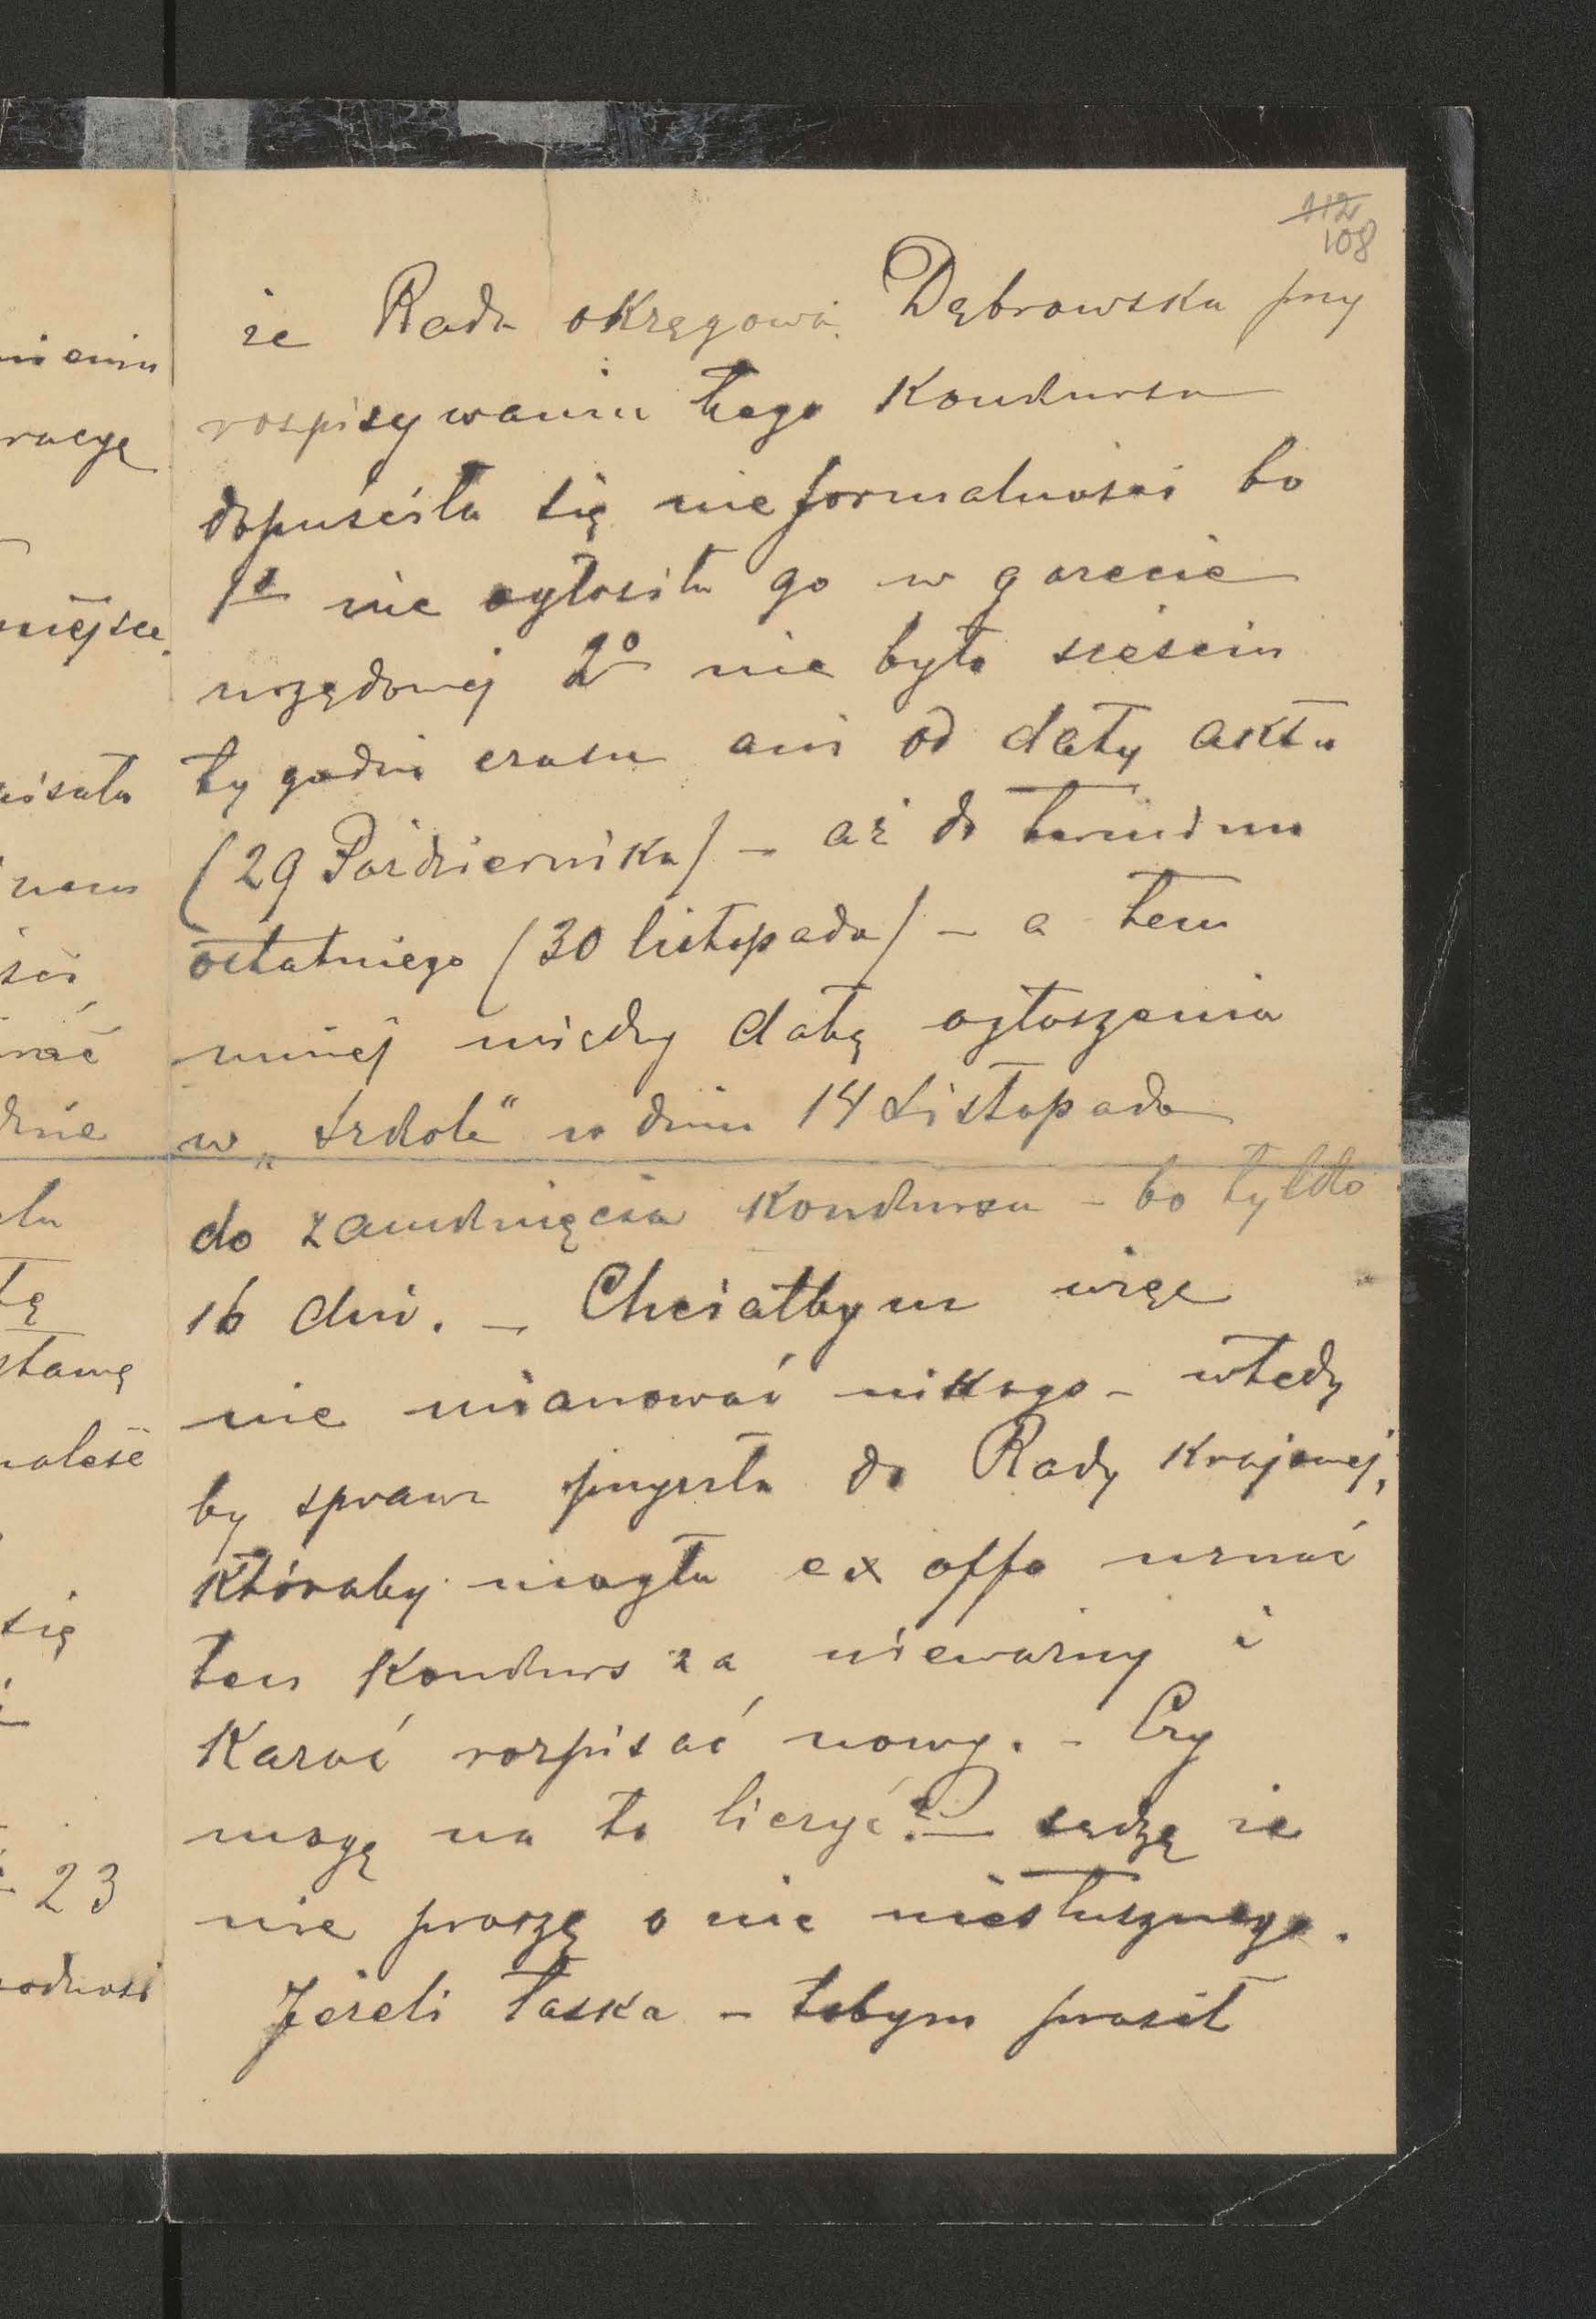 112
108
że Rada okręgowa Dąbrowska przy
rospisywaniu tego Konkursu
dopuściła się nieformalności bo
1o nie ogłosiła go w gazecie
urzędowej 2o nie było sześciu
tygodni czasu ani od daty aktu
(29 Października) – aż do terminu
ostatniego (30 listopada) – a tem
mniej między datą ogłoszenia
w „Szkole" w dniu 14 Listopada
do zamknięcia Konkursu – bo tylko
16 dni. – Chciałbym więc
nie mianować nikogo – wtedy
by sprawa przyszła do Rady Krajowej,
któraby mogła ex offo uznać
ten Konkurs za nieważny i
Kazać rozpisać nowy. – Czy
mogę na to liczyć? – sądzę że
nie proszę o nic niesłusznego.
Jeżeli łaska – tobym prosił
racyę
miejsce
pisała
nam
ści
dnie
tę
stawę
się
23